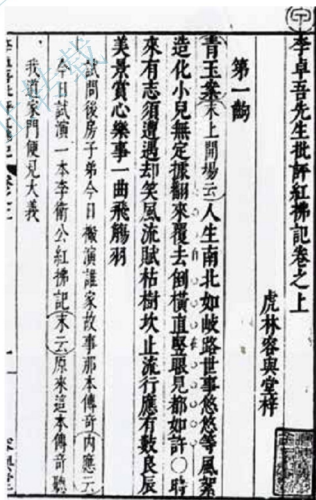 李卓吾先生批評紅拂記卷之上
虎林容與堂梓
第一齣
青玉案末上開場云人生南北如岐路世事悠悠等風絮
造化小兒無定據翻來覆去倒橫直豎眼見都如許○時
來有志須遭遇却笑風流賦枯樹坎止流行應有數良辰
美景賞心樂事一曲飛觴羽
試問後房子弟今日搬演誰家故事那本傳奇內應云
今日試演一本李衛公紅拂記末云原來這本傳奇聽
我道家門便見大義